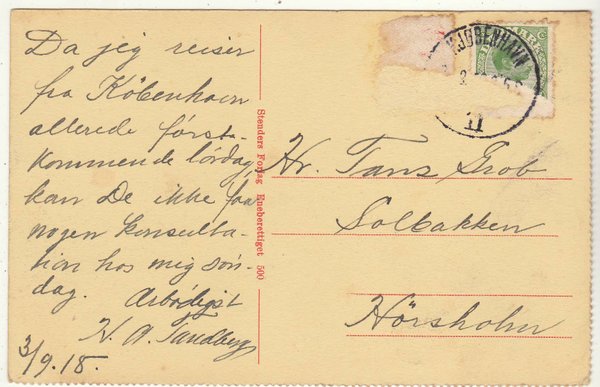 Da jeg reiser
fra København
allerede först-
kommende lördag,
kan De ikke faa
nogen konsulta-
tion hos mig sön-
dag. Arbödigst
H. A. Sandberg
3/9.18.
Stenders Forlag Eneberettiget 500
KJØBENHAVN
11
Hr. Tans Grob
Solbakken
Hörsholm